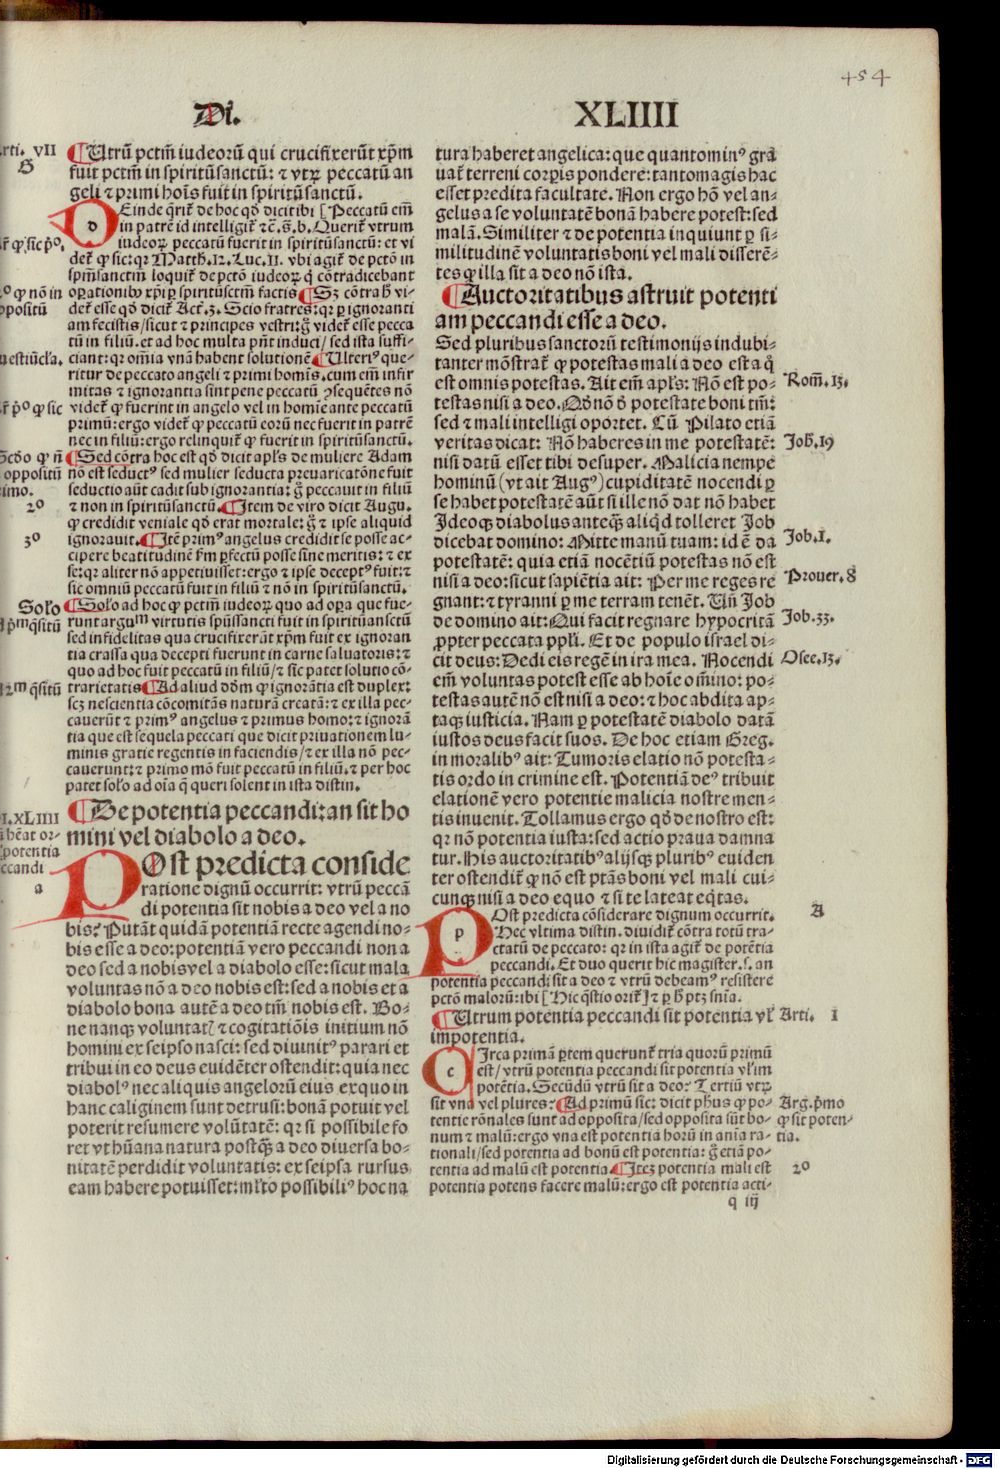 454
Di.
XLIIII
rti. VII
¶Utrū pctm̄ iudeorū qui crucifixerūt xp̄m
fuit pctm̄ in spiritū sanctū: ⁊ vtꝝ peccatū an
geli ⁊ primi hoīs fuit in spiritū sanctū.
DEinde q̄rit̄ de hoc qd̄ dicit ibi [Peccatū em̄
in patrē id intelligit̄ ⁊c̄. s̄. b. Querit̄ vtrum
iudeoꝝ peccatū fuerit in spiritū sanctū: et vi
det̄ ꝙ sic: qꝛ Matth. 12. Luc. 11. vbi agit̄ de pctō in
spm̄ sanctm̄ loquit̄ de pctō iudeoꝝ q̄ cōtradicebant
oꝑationibꝰ xp̄i ꝑ spiritū sctm̄ factis ¶Sꝫ cōtra h̄ vi-
det̄ esse qd̄ dicit̄ Act̄. 3. Scio fratres: qꝛ ꝑ ignoranti
am fecistis/sicut ⁊ principes vestri: g̊ videt̄ esse pecca
tū in filiū. et ad hoc multa pn̄t induci/sed ista suffi-
ciant: qꝛ om̄ia vnā habent solutionē ¶Ulteriꝰ que-
ritur de peccato angeli ⁊ primi homīs. cum em̄ infir
mitas ⁊ ignorantia sint pene peccati ꝯsequētes nō
videt̄ ꝙ fuerint in angelo vel in homīe ante peccatū
primū: ergo videt̄ ꝙ peccatū eorū nec fuerit in patrē
nec in filiū: ergo relinquit̄ ꝙ fuerit in spiritū sanctū.
¶Sed cōtra hoc est qd̄ dicit apl̄s de muliere Adam
nō est seductꝰ sed mulier seducta p̄uaricatōne fuit
seductio aūt cadit sub ignorantia: g̊ peccauit in filiū
⁊ non in spiritū sanctū ¶Item de viro dicit Augu.
ꝙ credidit veniale qd̄ erat mortale: g̊ ⁊ ipse aliquid
ignorauit. ¶Itē primꝰ angelus credidit se posse ac-
cipere beatitudinē fm̄ ꝑfectū posse sine meritis: ⁊ ex
se: qꝛ aliter nō appetiuisset: ergo ⁊ ipse deceptꝰ fuit: ⁊
sic omniū peccatū fuit in filiū ⁊ nō in spiritū sanctū.
¶Solo ad hoc ꝙ pctm̄ iudeoꝝ quo ad oꝑa que fue-
runt argum virtutis spūssancti fuit in spiritū an sctū
sed infidelitas qua crucifixerāt xp̄m fuit ex ignoran
tia crassa qua decepti fuerunt in carne saluatoris: ⁊
quo ad hoc fuit peccatū in filiū/⁊ sic patet solutio cō-
trarietatis ¶Ad aliud dd̄m ꝙ ignorātia est duplex:
scꝫ nescientia cōcomitās naturā creatā: ⁊ ex illa pec-
cauerūt ⁊ primꝰ angelus ⁊ primus homo: ⁊ ignorā
tia que est sequela peccati que dicit priuationem lu-
minis gratie regentis in faciendis/⁊ ex illa nō pec-
cauerunt: ⁊ primo mō fuit peccatū in filiū. ⁊ per hoc
patet solo ad oīa q̄ queri solent in ista distin.
¶De potentia peccandi: an sit ho
mini vel diabolo a deo.
POst predicta conside
ratione dignū occurrit: vtrū peccā
di potentia sit nobis a deo vel a no
bis? Putāt quidā potentiā recte agendi no-
bis esse a deo: potentiā vero peccandi non a
deo sed a nobis vel a diabolo esse: sicut mala
voluntas nō a deo nobis est: sed a nobis et a
diabolo bona autē a deo tm̄ nobis est. Bo-
ne nanqꝫ voluntatꝭ ⁊ cogitatiōis initium nō
homini ex seipso nasci: sed diuinitꝰ parari et
tribui in eo deus euidēter ostendit: quia nec
diabolꝰ nec aliquis angelorū eius ex quo in
hanc caliginem sunt detrusi: bonā potuit vel
poterit resumere volūtatē: qꝛ si possibile fo
ret vt hūana natura postqꝫ a deo diuersa bo-
nitatē perdidit voluntatis: ex seipsa rursus
eam habere potuisset: ml̄to possibiliꝰ hoc na
tura haberet angelica: que quanto minꝰ gra
uat̄ terreni corꝑis pondere: tanto magis hac
esset predita facultate. Non ergo hō vel an-
gelus a se voluntatē bonā habere potest: sed
malā. Similiter ⁊ de potentia inquiunt ꝑ si-
militudinē voluntatis boni vel mali disserē-
tes ꝙ illa sit a deo nō ista.
¶Auctoritatibus astruit potenti
am peccandi esse a deo.
Sed pluribus sanctorū testimonijs indubi-
tanter mōstrat̄ ꝙ potestas mali a deo est a q̄
est omnis potestas. Ait em̄ apl̄s: Nō est po-
testas nisi a deo. Qd̄ nō d̄ potestate boni tm̄:
sed ⁊ mali intelligi oportet. Cū Pilato etiā
veritas dicat: Nō haberes in me potestatē:
nisi datū esset tibi desuper. Malicia nempe
hominū (vt ait Augꝰ) cupiditatē nocendi ꝑ
se habet potestatē aūt si ille nō dat nō habet
Ideoqꝫ diabolus anteqꝫ aliqd̄ tolleret Job
dicebat domino: Mitte manū tuam: id ē da
potestatē: quia etiā nocētiū potestas nō est
nisi a deo: sicut sapiētia ait: Per me reges re
gnant: ⁊ tyranni ꝑ me terram tenēt. Un̄ Job
de domino ait: Qui facit regnare hypocritā
ꝓpter peccata ppl̄i. Et de populo israel di-
cit deus: Dedi eis regē in ira mea. Nocendi
em̄ voluntas potest esse ab hoīe om̄ino: po-
testas autē nō est nisi a deo: ⁊ hoc abdita ap-
taqꝫ iusticia. Nam ꝑ potestatē diabolo datā
iustos deus facit suos. De hoc etiam Greg.
in moralibꝰ ait: Tumoris elatio nō potesta-
tis ordo in crimine est. Potentiā deꝰ tribuit
elationē vero potentie malicia nostre men-
tis inuenit. Tollamus ergo qd̄ de nostro est:
qꝛ nō potentia iusta: sed actio praua damna
tur. His auctoritatibꝰ alijsqꝫ pluribꝰ euiden
ter ostendit̄ ꝙ nō est ptās boni vel mali cui-
cunqꝫ nisi a deo equo ⁊ si te lateat eq̄tas.
POst predicta cōsiderare dignum occurrit.
Hec vltima distin. diuidit̄ cōtra totū tra-
ctatū de peccato: qꝛ in ista agit̄ de potētia
peccandi. Et duo querit hic magister. s. an
potentia peccandi sit a deo ⁊ vtrū debeamꝰ resistere
pctō malorū: ibi [Hic q̄stio orit̄] ⁊ ꝑ h̄ ptꝫ sn̄ia.
¶Utrum potentia peccandi sit potentia vl̄
impotentia.
CIrca primā ꝑtem querunt̄ tria quorū primū
est/vtrū potentia peccandi sit potentia vl̄ im
potētia. Secūdū vtrū sit a deo? Tertiū vtꝝ
sit vna vel plures? ¶Ad primū sic: dicit ph̄us ꝙ po-
tentie rōnales sunt ad opposita/sed opposita sūt bo-
num ⁊ malū: ergo vna est potentia horū in anīa ra-
tionali/sed potentia ad bonū est potentia: g̊ etiā po-
tentia ad malū est potentia. ¶Iteꝫ potentia mali est
potentia potens facere malū: ergo est potentia acti-
q iij
Rom̄. 13.
Joh. 19
Job. 1.
Prouer. 8
Job. 33.
Osee. 13.
A
Arti. I
Arg. p̄mo
ꝙ sit poten-
tia.
2o